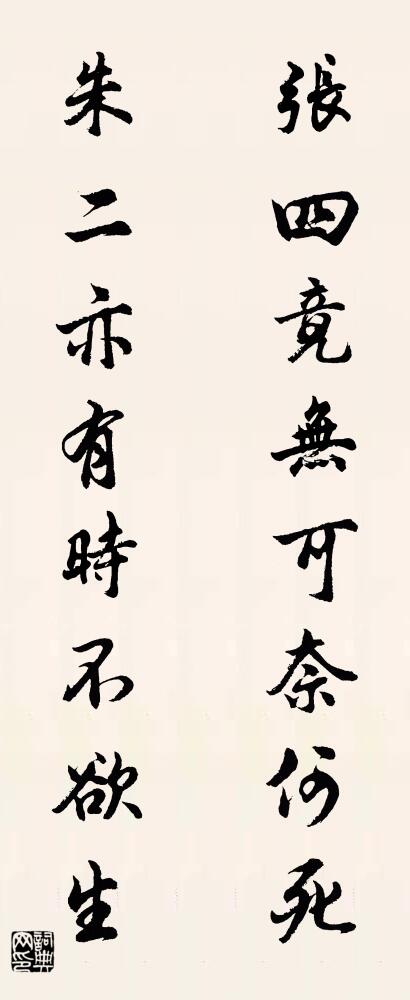 張四竟無可奈何死
朱二亦有時不欲生
詞典網印